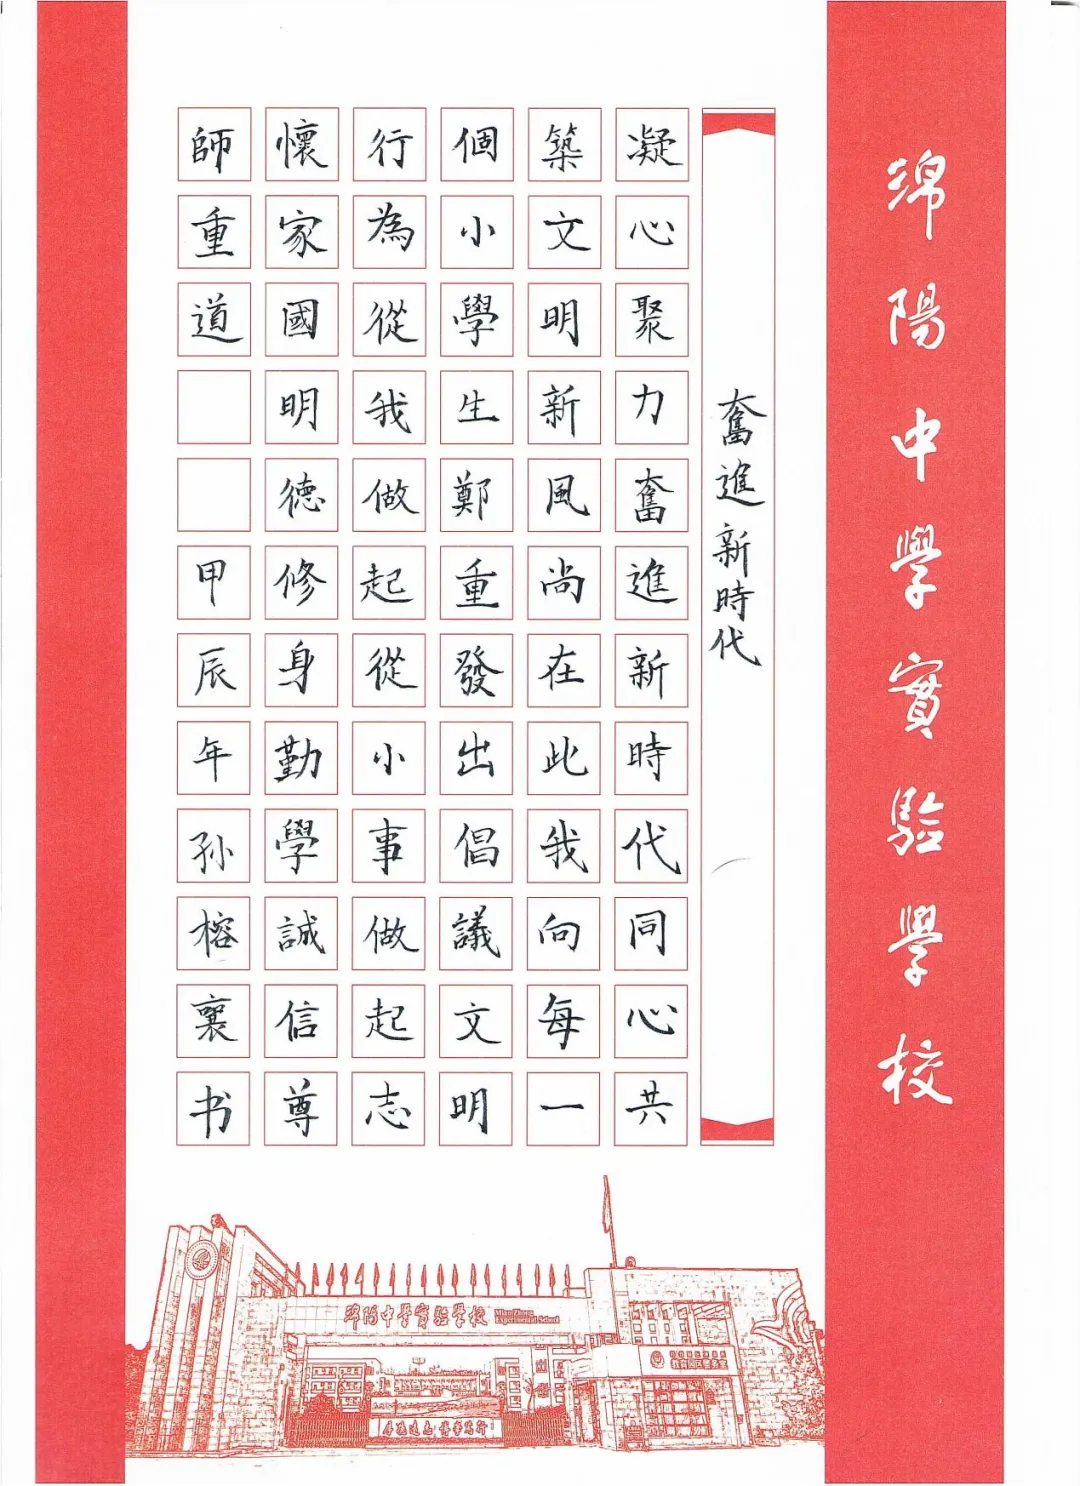 綿陽中學實驗學校
奮進新時代
凝心聚力奮進新時代同心共
築文明新風尚在此我向每一
個小學生鄭重發出倡議文明
行為從我做起從小事做起志
懷家國明德修身勤學誠信尊
師重道 甲辰年孙榕襄书
綿陽中學實驗學校
Experimental School